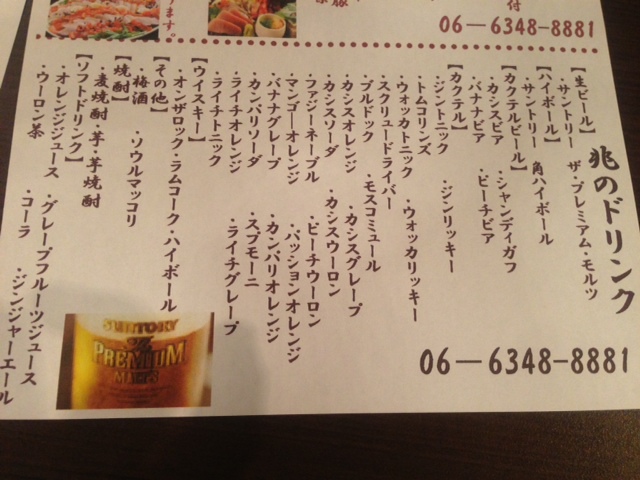 ります。
付
06―6348-8881
兆のドリンク
【生ビール】
・サントリー ザ・プレミアム・モルツ
【ハイボール】
・サントリー 角ハイボール
【カクテルビール】
・カシスビア ・シャンディガフ
・バナナビア ・ピーチビア
【カクテル】
・ジントニック ・ジンリッキー
・トムコリンズ
・ウォッカトニック ・ウォッカリッキー
・スクリュードライバー
・ブルドック ・モスコミュール
・カシスオレンジ ・カシスグレープ
・カシスソーダ ・カシスウーロン
・ファジーネーブル ・ピーチウーロン
・マンゴーオレンジ ・パッションオレンジ
・バナナグレープ ・カンパリオレンジ
・カンパリソーダ ・スプモーニ
・ライチオレンジ ・ライチグレープ
・ライチトニック
【ウイスキー】
・オンザロック・ラムコーク・ハイボール
【その他】
・梅酒 ・ソウルマッコリ
【焼酎】
・麦焼酎・芋・芋焼酎
【ソフトドリンク】
・オレンジジュース ・グレープフルーツジュース
・ウーロン茶 ・コーラ ・ジンジャーエール
06―6348-8881
SUNTORY
The
PREMIUM
MALT'S